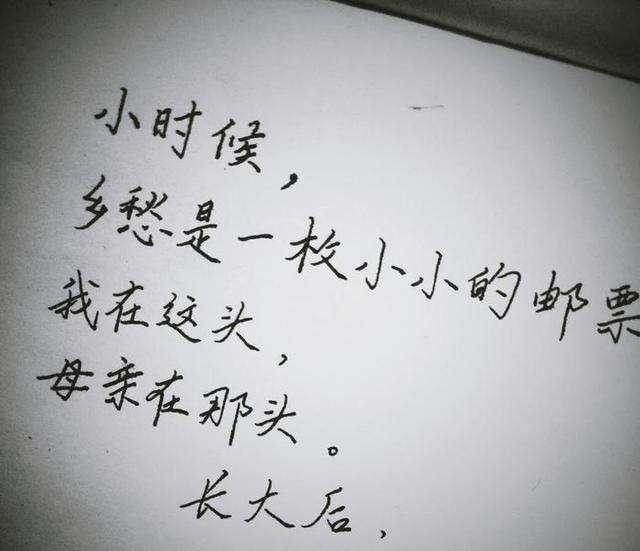 小时候，
乡愁是一枚小小的邮票
我在这头，
母亲在那头。
长大后，